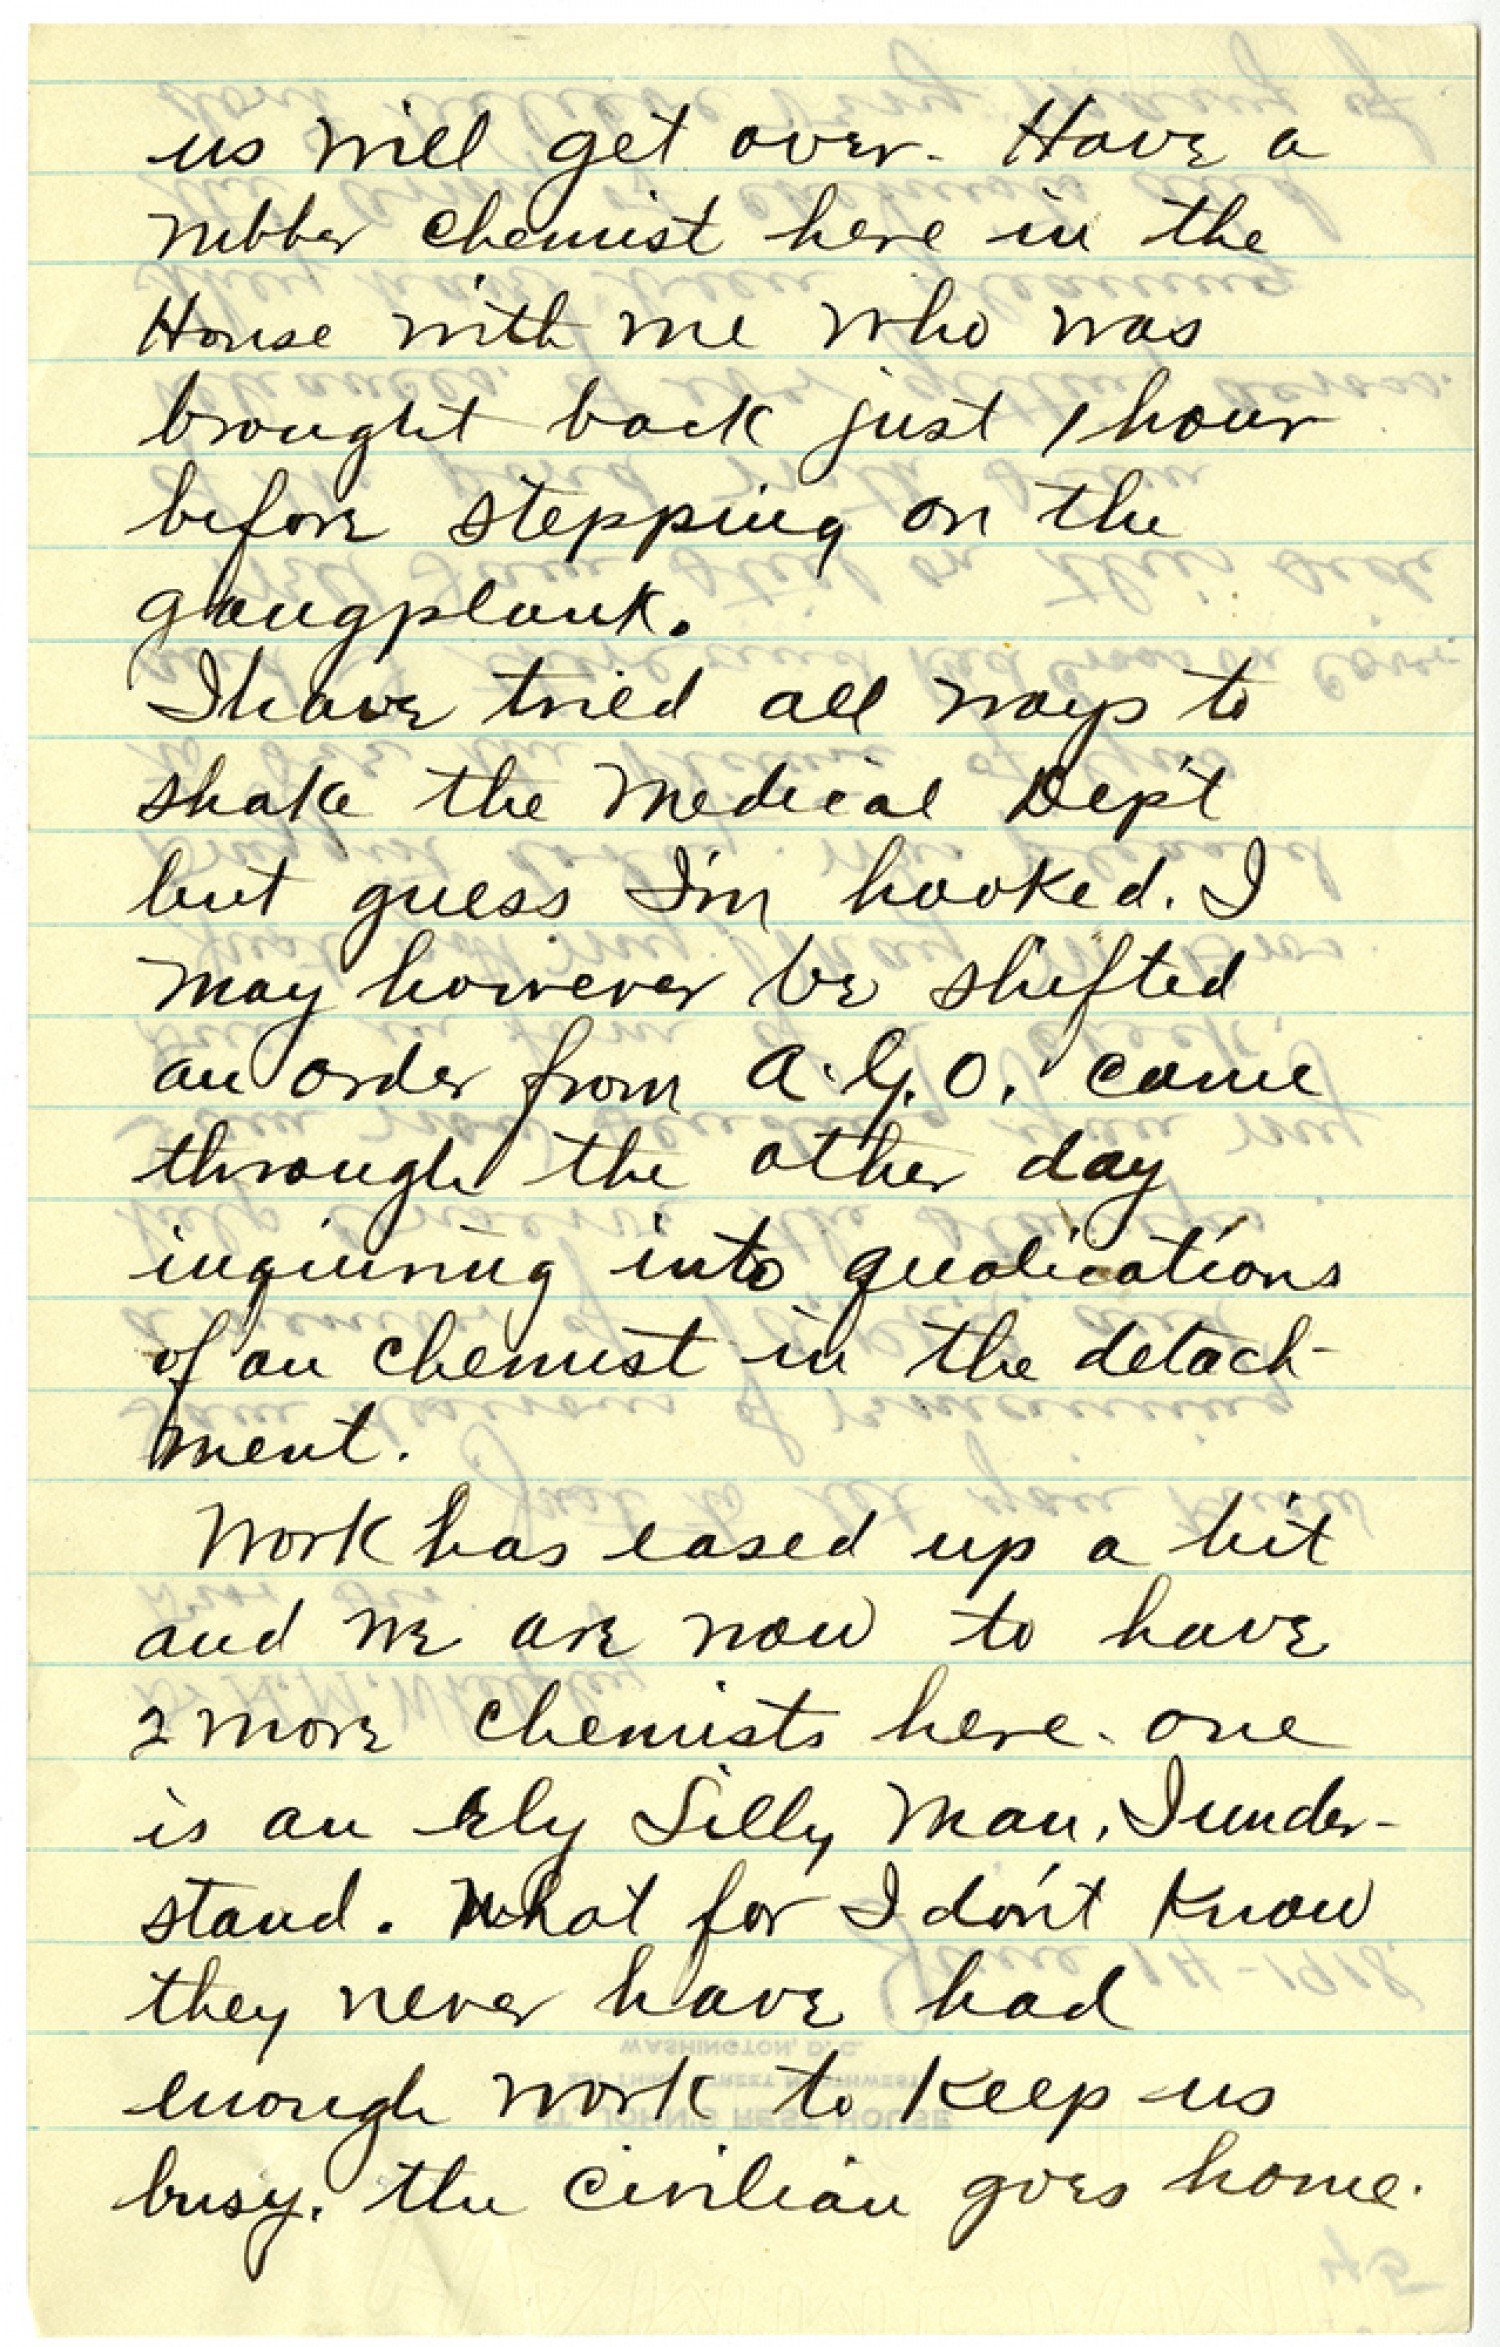 us will get over. Have a
rubber chemist here in the
House with me who was
brought back just 1 hour
before stepping on the
gangplank.
I have tried all ways to
shake the Medical Dep't
but guess I'm hooked. I
may however be shifted
an order from A.G.O. came
through the other day
inquiring into qualications
of an chemist in the detach-
ment.
Work has eased up a bit
and we are now to have
2 more chemists here. one
is an Ely Lilly man, I under-
stand. What for I don't know
they never have had
enough work to keep us
busy. the civilian goes home.